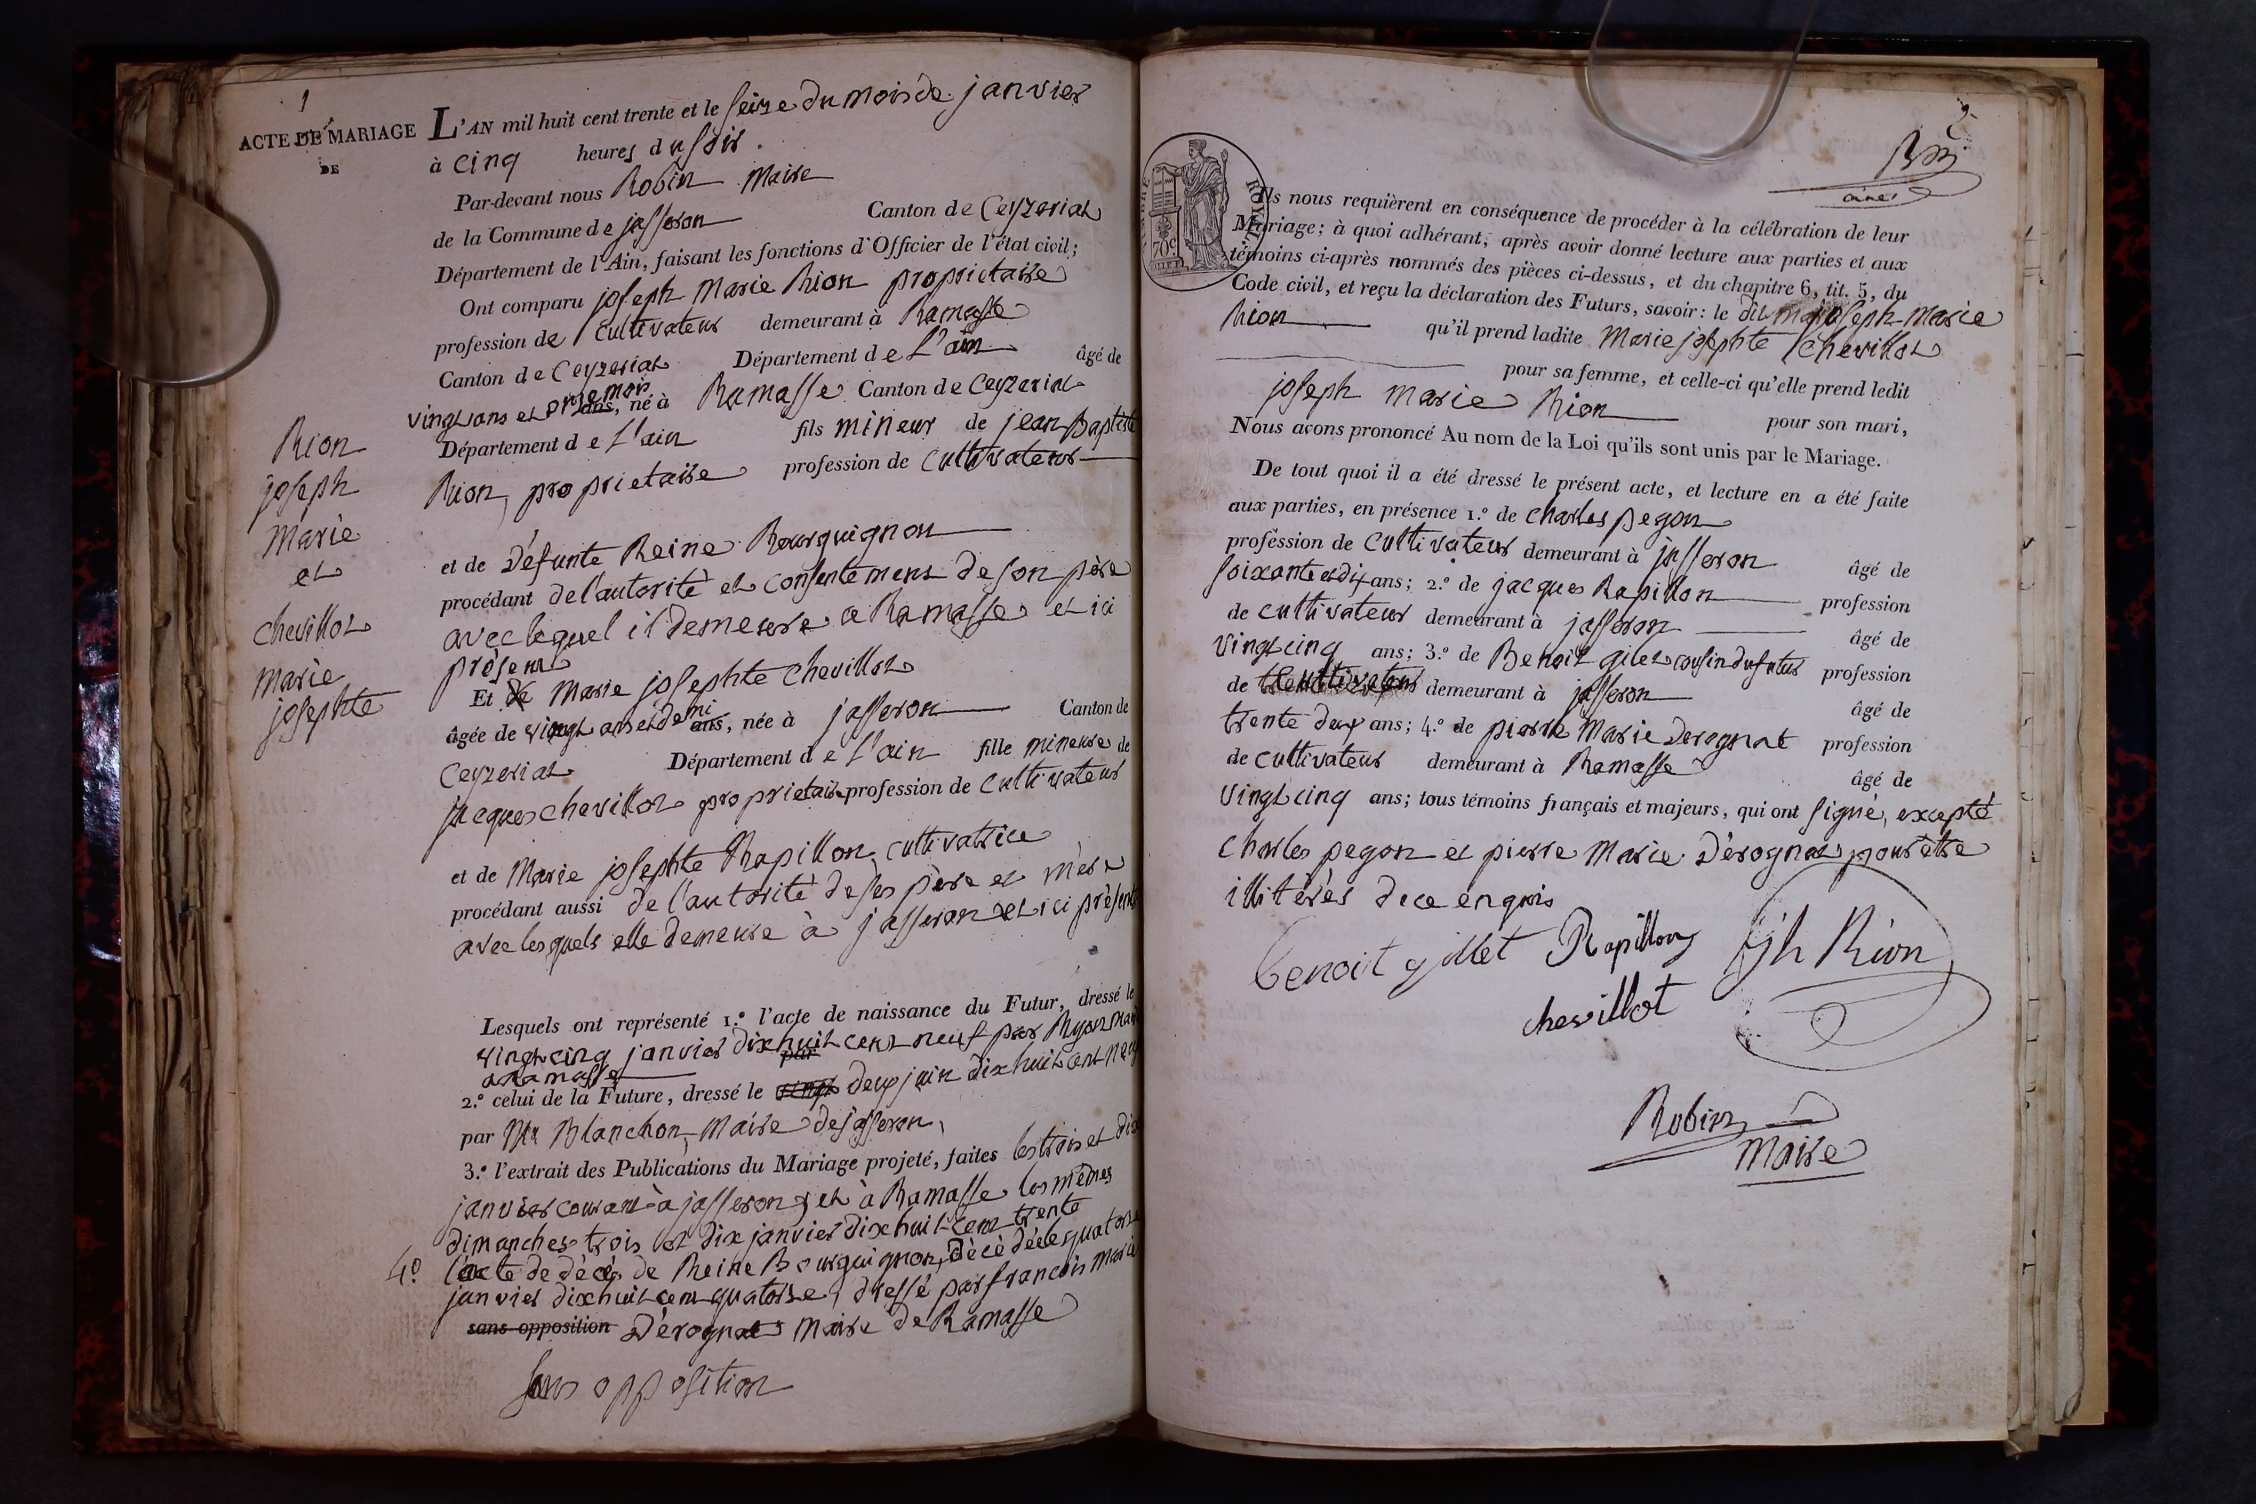 1
ACTE DE MARIAGE
DE
L'AN mil huit cent trente et le seize du mois de janvier
à cinq heures du soir.
Par-devant nous Robin Maire
de la Commune de jasseron Canton de Ceyzeriat
Département de l'Ain, faisant les fonctions d'Officier de l'état civil;
Ont comparu joseph Marie Rion proprietaire
profession de Cultivateur demeurant à Ramasse
Canton de Ceyzeriat Département de L'ain âgé de
vingt ans et onze mois ans, né à Ramasse Canton de Ceyzeriat
Département de L'ain fils mineur de jean Baptiste
Rion, proprietaire profession de Cultivateur
et de Défunte Reine Bourguignon
procédant de l'autorité et consentement de son père
avec lequel il demeure a Ramasse et ici
présent
Rion
joseph
Marie
et
chevillot
Marie
josephte
Et de Marie josephte Chevillot
âgée de vingt ans et demi ans, née à jasseron Canton de
Ceyzeriat Département de L'ain fille mineure de
jacques chevillot proprietaire profession de Cultivateur
et de Marie josephte Rapillon, cultivatrice
procédant aussi de l'autorité de ses père et mère
avec lesquels elle demeure à jasseron et ici présents
Lesquels ont représenté 1.º l'acte de naissance du Futur, dressé le
vingt cinq janvier dixhuit cent neuf par Ryon maire
a Ramasse par
2.º celui de la Future, dressé le deux juin dixhuit cent neuf
par Mr Blanchon, Maire de jasseron,
3.º l'extrait des Publications du Mariage projeté, faites les trois et dix
janvier courant à jasseron, et à Ramasse les mêmes
dimanches trois et dix janvier dixhuit cent trente
4º l'acte de décès de Reine Bourguignon, décédée le quatorze
janvier dixhuit cent quatorze, dressé par francois Marie
sans opposition Dérognat Maire de Ramasse
sans opposition
2
Ils nous requièrent en conséquence de procéder à la célébration de leur
Mariage; à quoi adhérant, après avoir donné lecture aux parties et aux
témoins ci-après nommés des pièces ci-dessus, et du chapitre 6, tit. 5, du
Code civil, et reçu la déclaration des Futurs, savoir: le dit joseph Marie
Rion qu'il prend ladite Marie josephte Chevillot
pour sa femme, et celle-ci qu'elle prend ledit
joseph Marie Rion pour son mari,
Nous avons prononcé Au nom de la Loi qu'ils sont unis par le Mariage.
De tout quoi il a été dressé le présent acte, et lecture en a été faite
aux parties, en présence 1.º de Charles pegon
profession de Cultivateur demeurant à jasseron âgé de
soixante et dix ans; 2.º de jacques Rapillon profession
de cultivateur demeurant à jasseron âgé de
vingt cinq ans; 3.º de Benoit gilet cousin du futur profession
de Cultivateur demeurant à jasseron âgé de
trente deux ans; 4.º de pierre Marie Derognat profession
de cultivateur demeurant à Ramasse âgé de
vingt cinq ans; tous témoins français et majeurs, qui ont signé, excepté
Charles pegon et pierre Marie Dérognat pour être
illitérés de ce enquis
Benoit gillet Rapillon Jh Rion
chevillot
Robin
Maire
ROYAL
70c